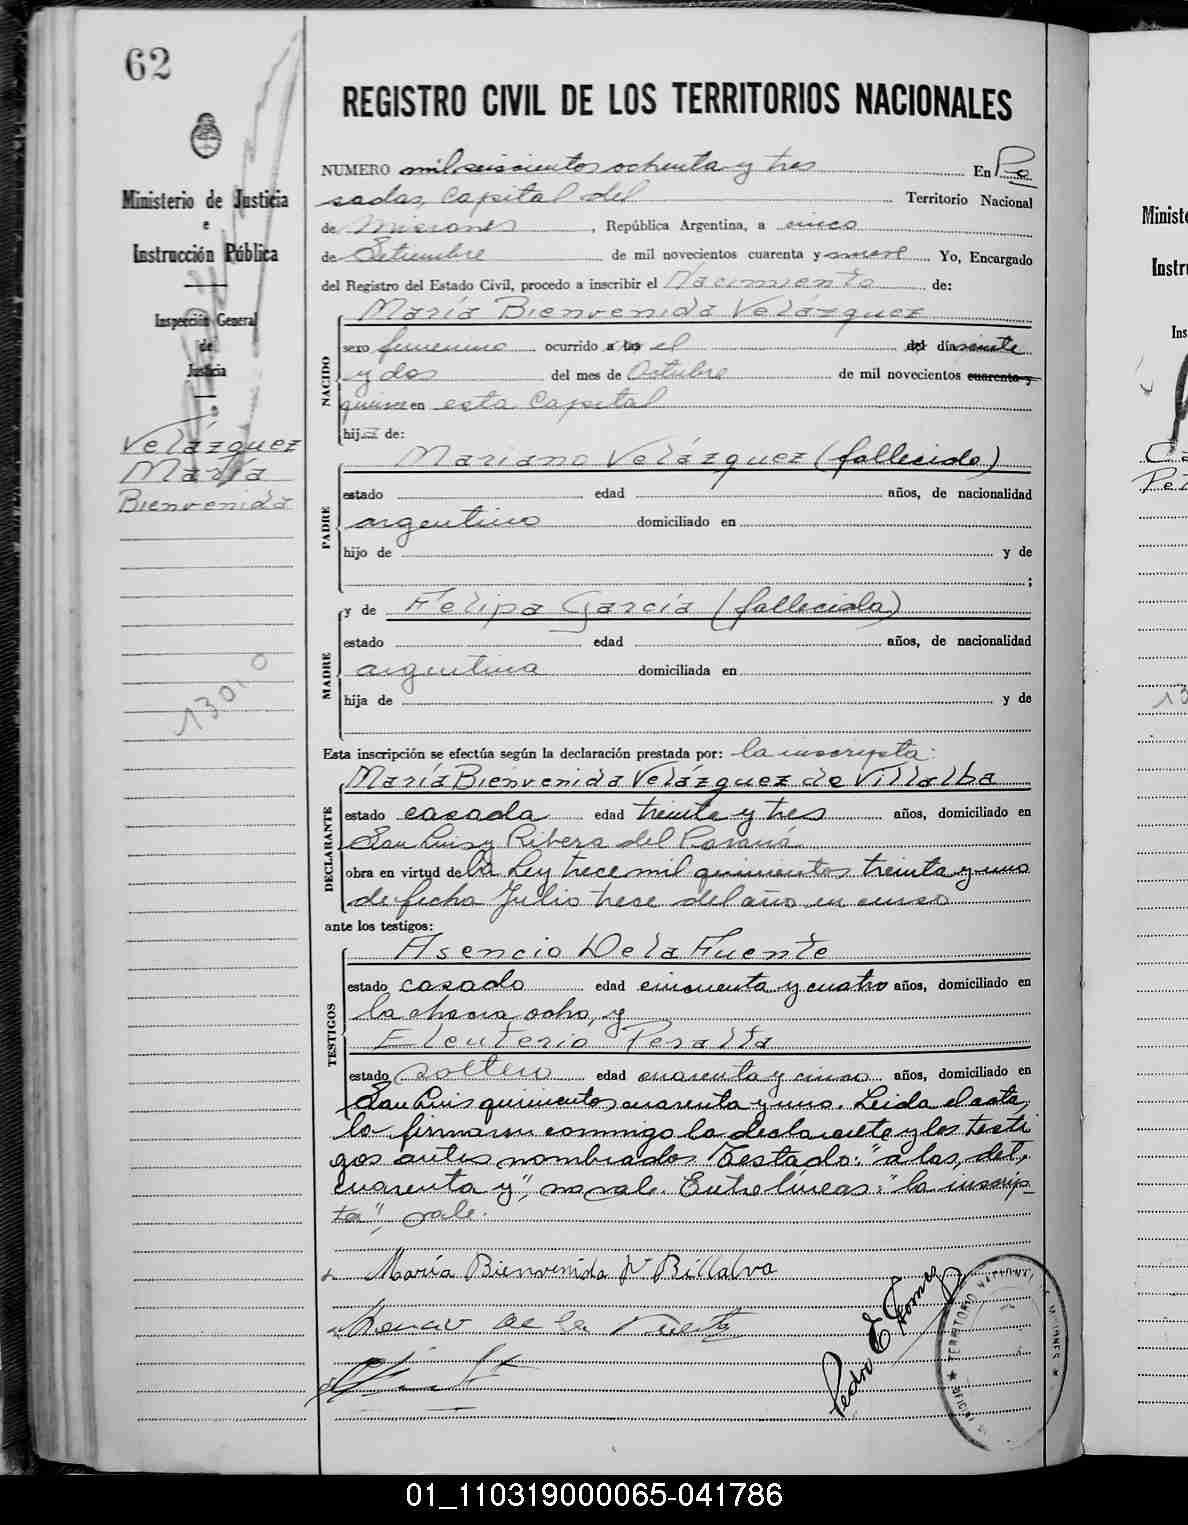 62
Ministerio de Justicia
e
Instrucción Pública
Inspección General
de
Justicia
Velázquez
María
Bienvenida
REGISTRO CIVIL DE LOS TERRITORIOS NACIONALES
NUMERO mil seiscientos ochenta y tres En Po
sadas, capital del Territorio Nacional
de Misiones, República Argentina, a cinco
de Setiembre de mil novecientos cuarenta y nueve Yo, Encargado
del Registro del Estado Civil, procedo a inscribir el Nacimiento de:
María Bienvenida Velázquez
NACIDO
sexo femenino ocurrido a las el del día veinte
y dos del mes de Octubre de mil novecientos cuarenta y
quince en esta Capital
hija de:
Mariano Velázquez (fallecido)
PADRE
estado edad años, de nacionalidad
argentino domiciliado en
hijo de y de
;
y de Felipa García (fallecida)
MADRE
estado edad años, de nacionalidad
argentina domiciliada en
hija de y de
Esta inscripción se efectúa según la declaración prestada por: la inscripta:
María Bienvenida Velázquez de Villalba
DECLARANTE
estado casada edad treinta y tres años, domiciliado en
San Luis y Ribera del Paraná
obra en virtud de la Ley trece mil quinientos treinta y uno
de fecha Julio trece del año en curso
ante los testigos:
Asencio De la Fuente
TESTIGOS
estado casado edad cincuenta y cuatro años, domiciliado en
la chacra ocho, y
Eleuterio Peralta
estado soltero edad cuarenta y cinco años, domiciliado en
San Luis quinientos cuarenta y uno. Leida el acta,
la firmaron conmigo la declarante y los testi
gos antes nombrados. Testado: "a las, del,
cuarenta y", no vale. Entre lineas: "la inscrip-
ta", vale.
María Bienvenida V de Billalva
Asencio de la Fuente
Pedro E Gomez
TERRITORIO NACIONAL DE MISIONES
01_110319000065-041786